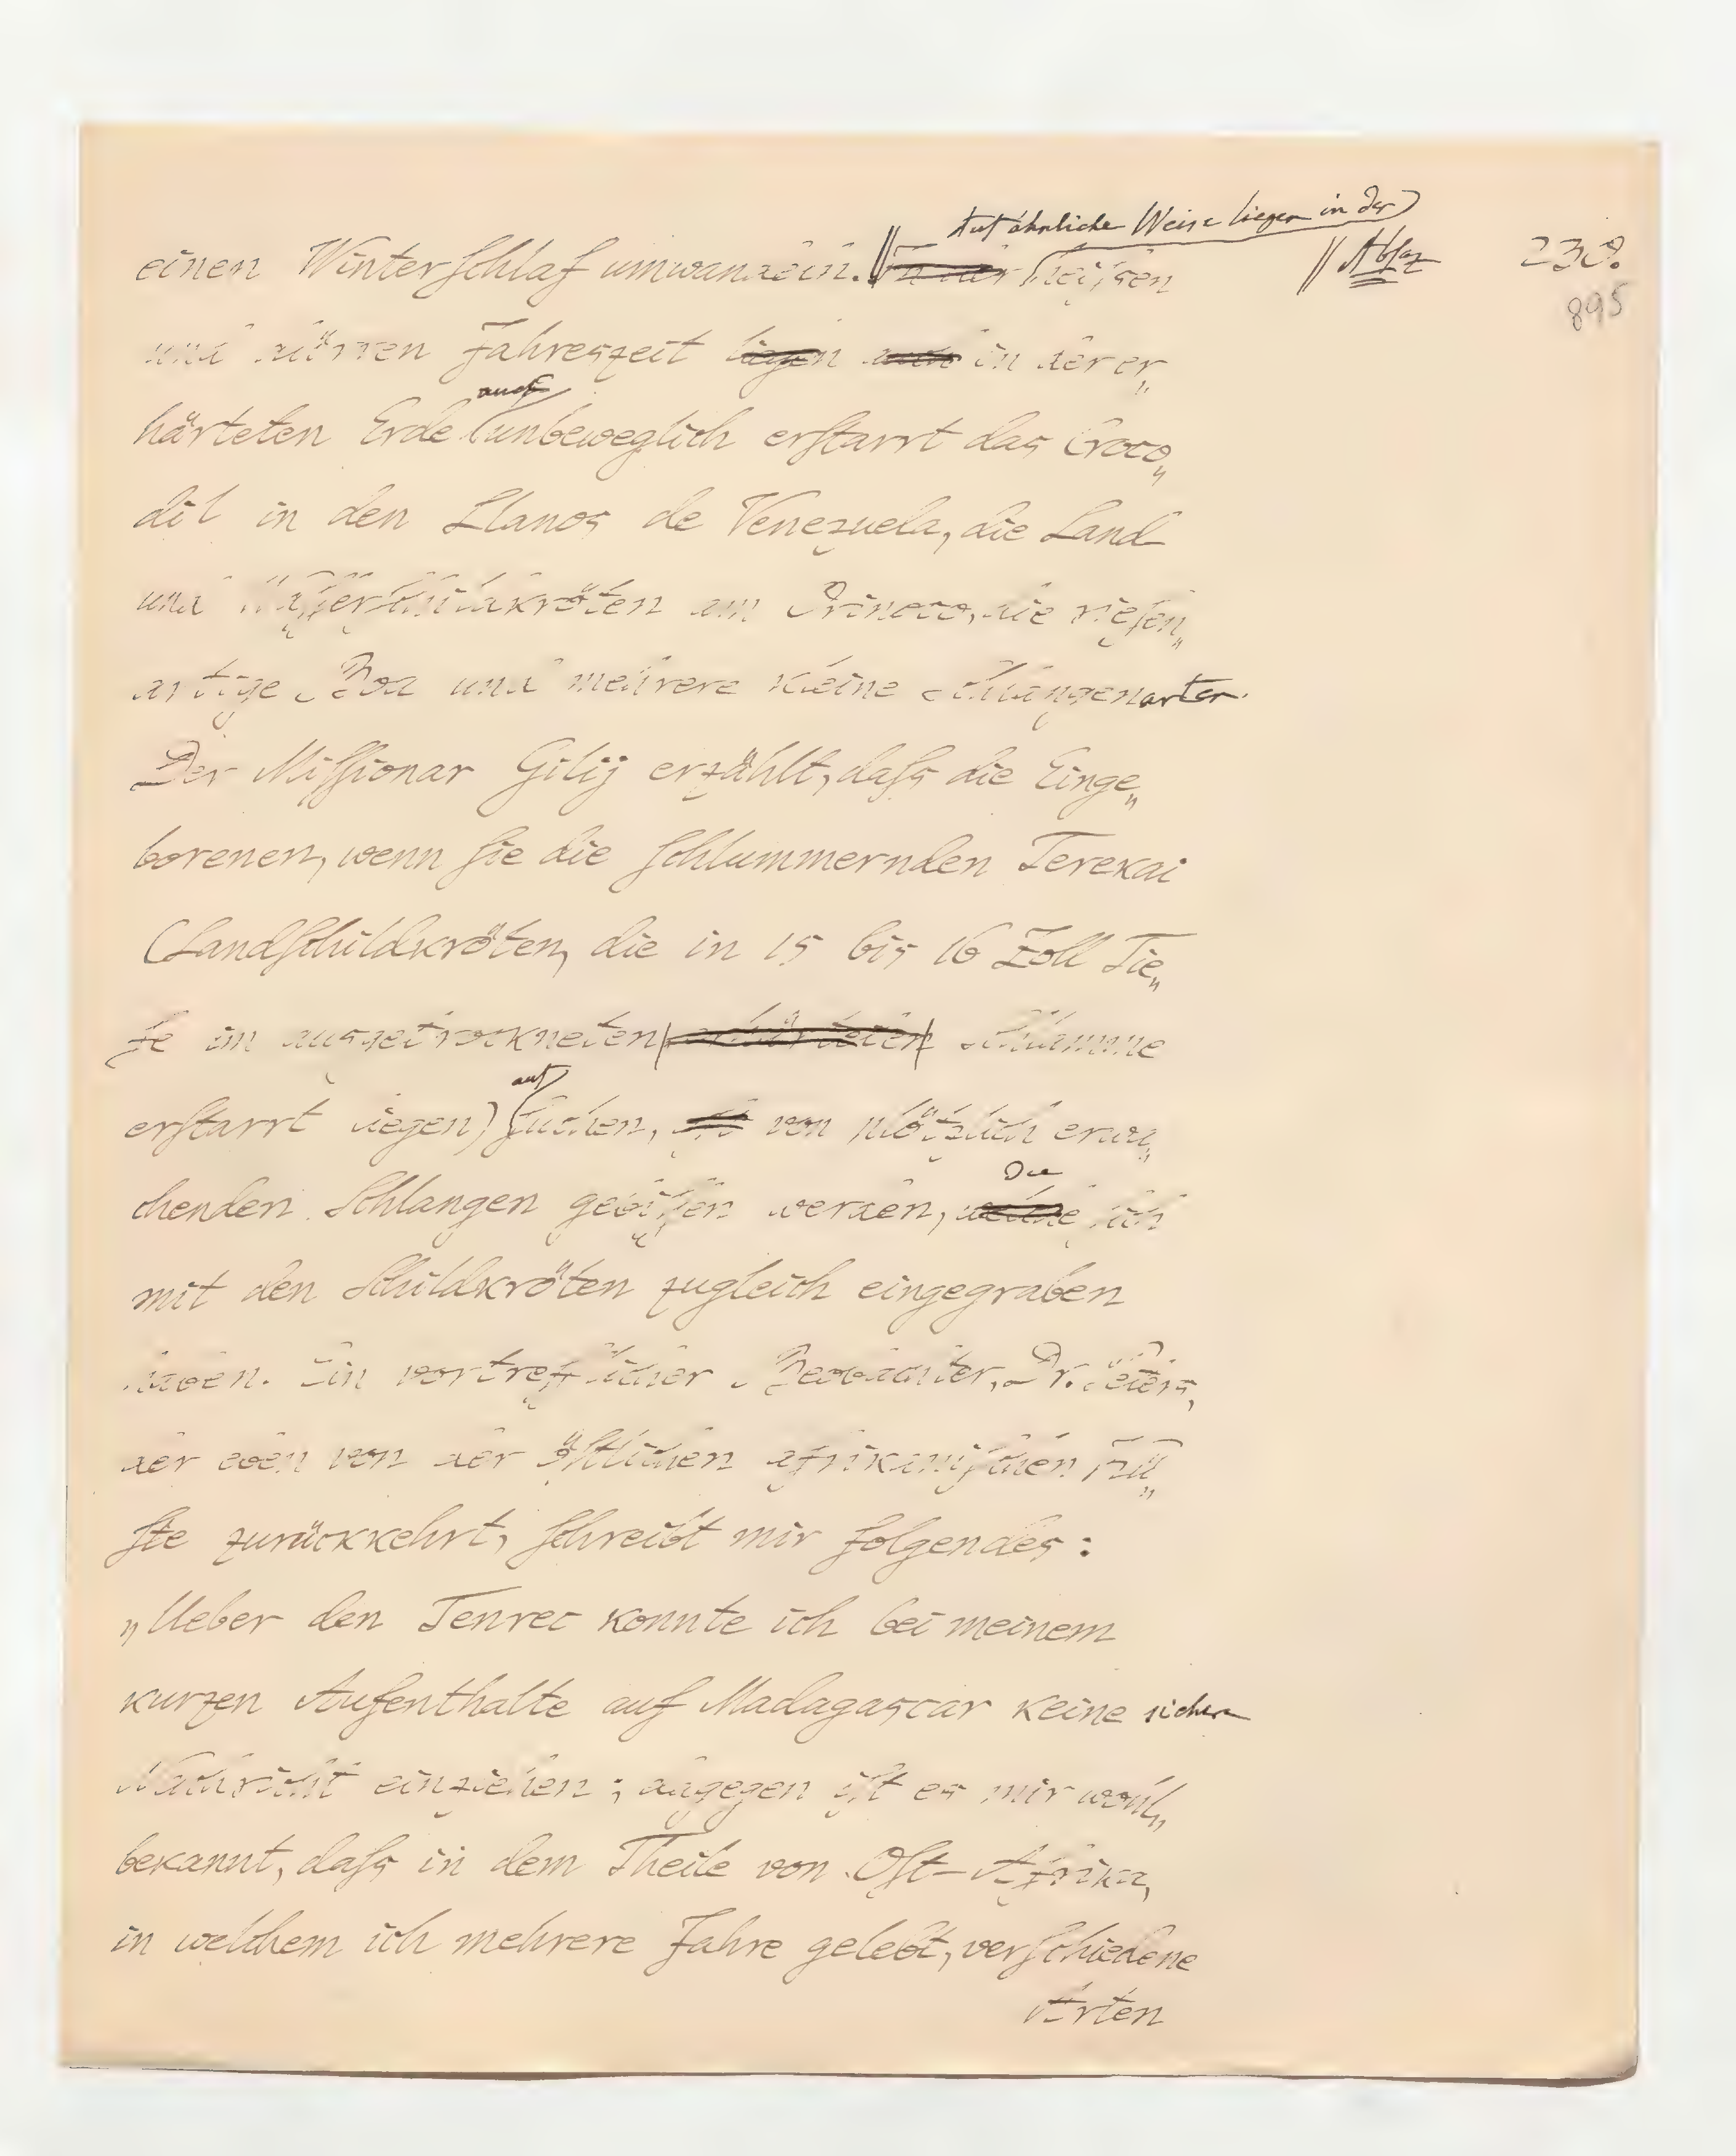 Auf ähnliche Weise liegen in der
einen Winterschlaf umwandeln. || In der heißen || Absaz 230.
895
und dürren Jahreszeit liegen auch in der er„
auch
härteten Erde unbeweglich erstarrt das Croco„
dil in den Llanos de Venezuela, die Land
und Wasserschildkröten am Orinoco, die riesen„
artige Boa und mehrere kleine Schlangenarten.
Der Missionar Gilij erzählt, dass die Einge„
borenen, wenn sie die schlummernden Terekai
(Landschildkröten, die in 15 bis 16 Zoll Tie„
fe im ausgetrockneten erhärteten Schlamme
auf
erstarrt liegen) suchen, von plötzlich erwa„
die
chenden Schlangen gebissen werden, welche sich
mit den Schildkröten zugleich eingegraben
haben. Ein vortrefflicher Beobachter, Dr. Peters,
der eben von der östlichen afrikanischen Kü„
ste zurückkehrt, schreibt mir folgendes:
„Ueber den Tenrec konnte ich bei meinem
kurzen Aufenthalte auf Madagascar keine sichere
Nachricht einziehen; dagegen ist es mir wohl„
bekannt, dass in dem Theile von Ost-Afrika,
in welchem ich mehrere Jahre gelebt, verschiedene
Arten